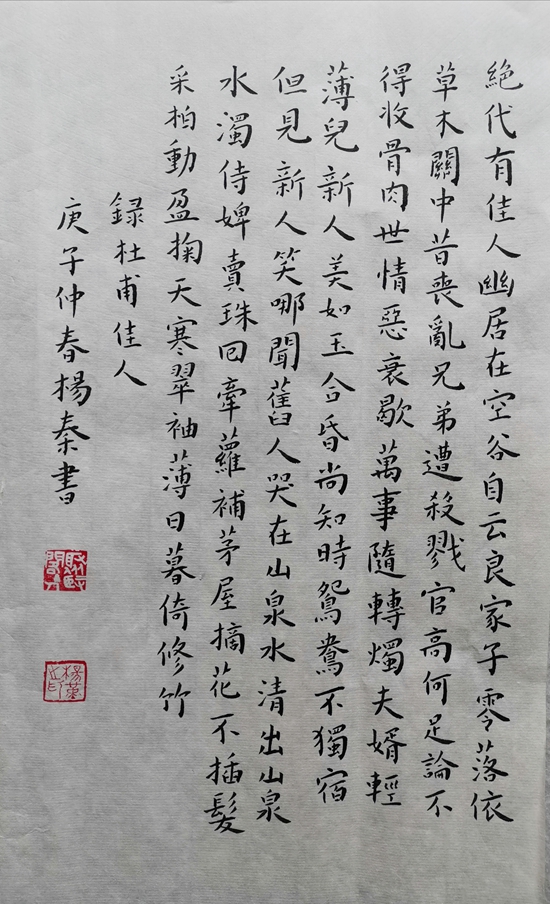 絕代有佳人幽居在空谷自云良家子零落依
草木關中昔喪亂兄弟遭殺戮官高何足論不
得收骨肉世情惡衰歇萬事隨轉燭夫婿輕
薄兒新人美如玉合昏尚知時鴛鴦不獨宿
但見新人笑哪聞舊人哭在山泉水清出山泉
水濁侍婢賣珠回牽蘿補茅屋摘花不插髮
采柏動盈掬天寒翠袖薄日暮倚修竹
録杜甫佳人
庚子仲春楊秦書